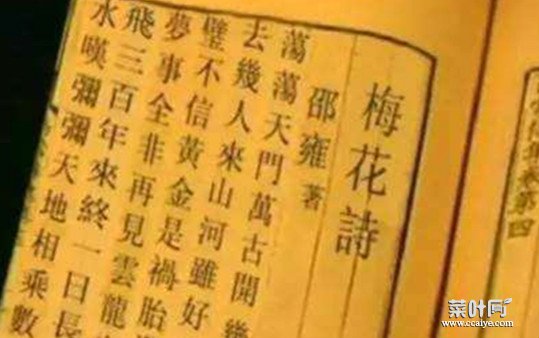 梅花詩
邵雍著
蕩蕩天門萬古開幾
去幾人來山河雖好
璧不信黃金是禍胎
夢事全非再見雲龍
飛三百年來終一日長
水嘆彌彌天地相乘數
集卷第四
菜叶网
www.ccaiye.com